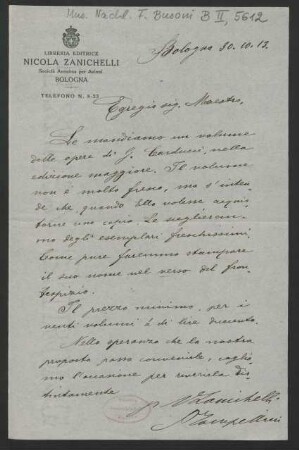 Mus. Nachl. F. Busoni B II, 5612
LIBRERIA EDITRICE
NICOLA ZANICHELLI
Società Anonima per Azioni
BOLOGNA
TELEFONO N. 8-53
Bologna 30.10.12
Egregio sig. Maestro,
Le mandiamo un volume
delle opere di G. Carducci, nella
edizione maggiore. Il volume
non è molto fresco, ma s'inten
de che quando Ella volesse acqui
starne una copia Le sceglieremo
degli esemplari freschissimi,
come pure faremmo stampare
il suo nome nel verso del fron
tespizio.
Il prezzo minimo, per i
venti volumi è di lire duecento.
Nella speranza che la nostra
proposta possa convenirle, coglia
mo l'occasione per riverirla di
stintamente
p. N. Zanichelli